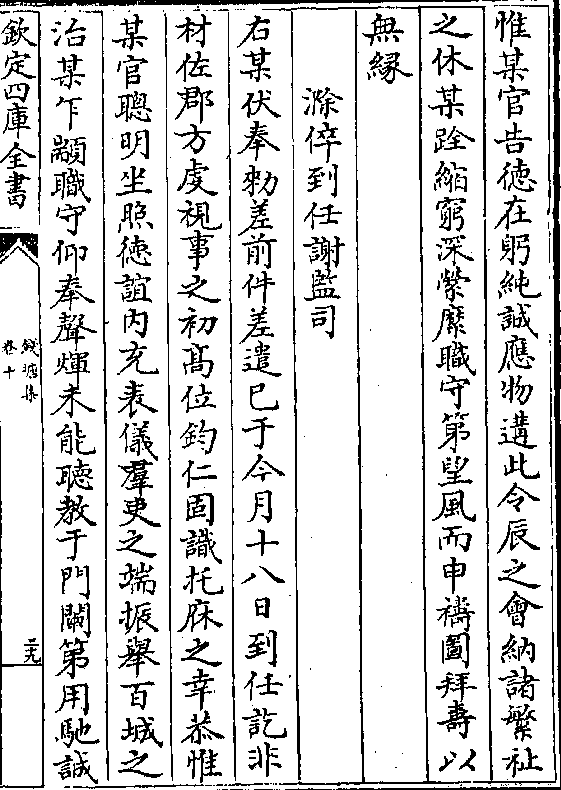 惟某官吉德在躬純誠應物遘此令辰之會納諸繁祉
之休某跧縮窮深縈縻職守第望風而申禱圖拜壽以
無縁
滁倅到任謝監司
右某伏奉勑差前件差遣已于今月十八日到任訖非
材佐郡方虔視事之初髙位鈞仁固識托庥之幸恭惟
某官聰明坐照徳誼内充表儀羣吏之端振舉百城之
治某乍顓職守仰奉聲煇未能聴教于門闌第用馳誠
欽定四庫全書
錢塘集
卷十
二十九